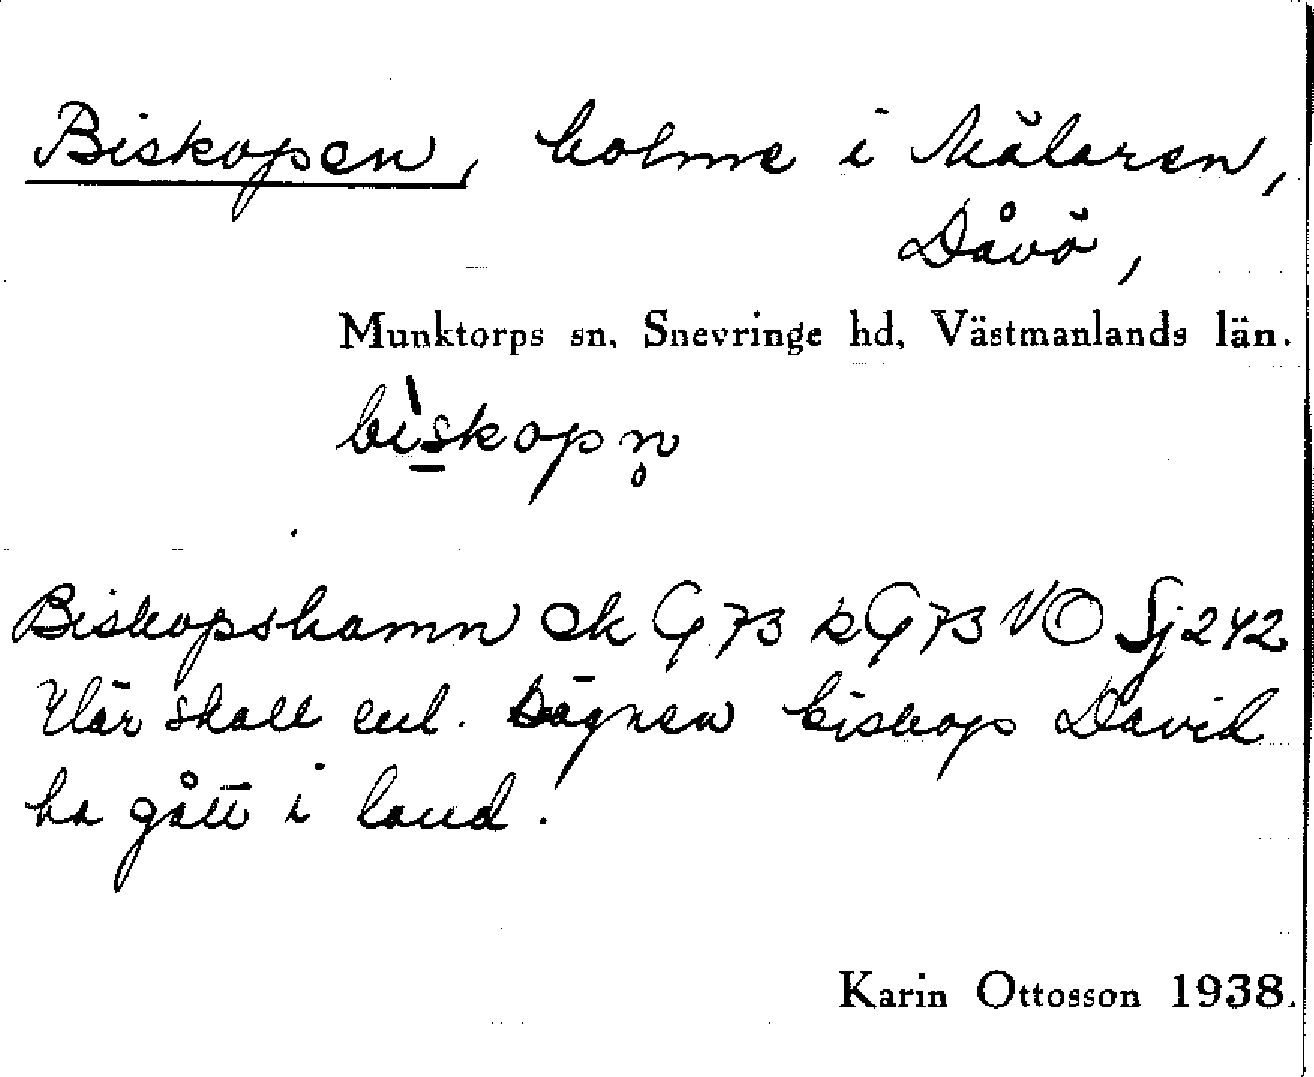 Biskopen, holme i Mälaren,
Dåvö,
Munktorps sn, Snevringe hd, Västmanlands län.
bìskopn̥
Biskopshamn ek G 73 k G 73 NO Sj 242
Här skall enl. sägnen biskop David
ha gått i land.
Karin Ottosson 1938.